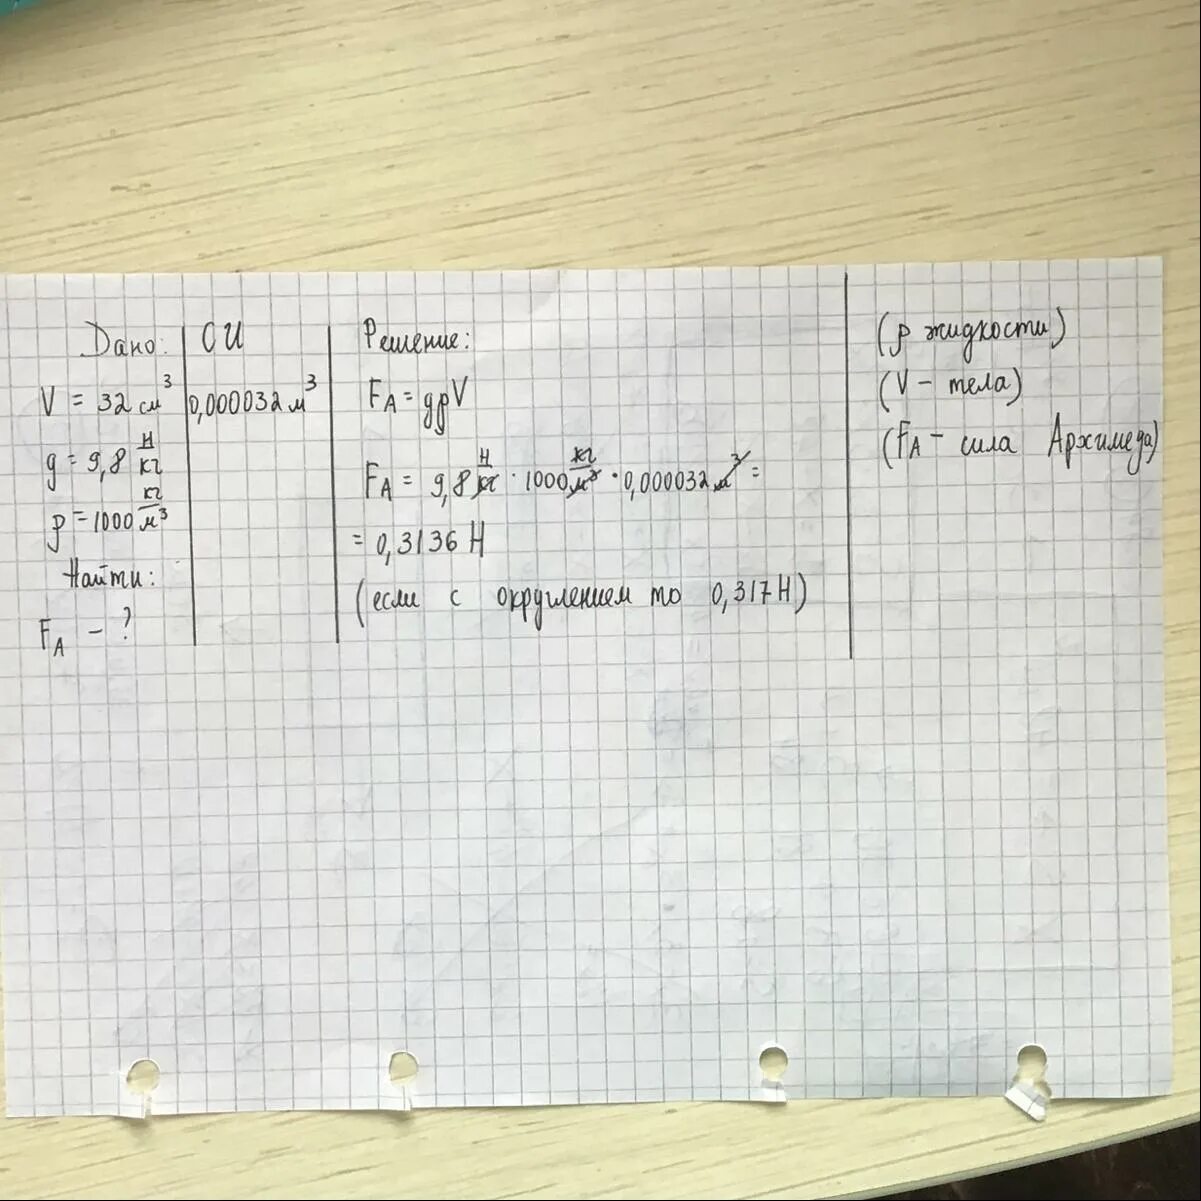 Дано:
V = 32 см³
g = 9,8 Н/кг
ρ = 1000 кг/м³
Найти:
F_A - ?
СИ
0,000032 м³
Решение:
F_A = gρV
F_A = 9,8 Н/кг · 1000 кг/м³ · 0,000032 м³ =
= 0,3136 Н
(если с округлением то 0,317 Н)
(ρ жидкости)
(V - тела)
(F_A - сила Архимеда)